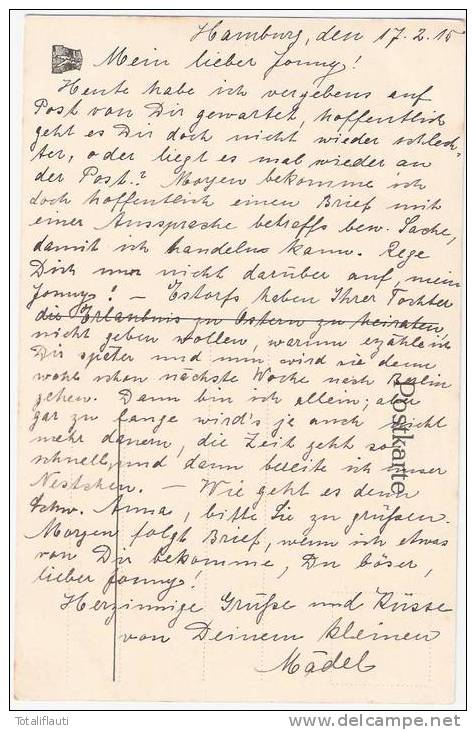 Hamburg, den 17.2.15
Mein lieber Jonny!
Heute habe ich vergebens auf
Post von Dir gewartet, hoffentlich
geht es Dir doch nicht wieder schlech-
ter, oder liegt es mal wieder an
der Post.? Morgen bekomme ich
doch hoffentlich einen Brief mit
einer Aussprache betreffs bew. Sache,
damit ich handeln kann. Rege
Dich nur nicht darüber auf, mein
Jonny! – Estorfs haben Ihrer Tochter
die Erlaubnis zu Ostern zu heiraten,
nicht geben wollen, warum erzähle ich
Dir später und nun wird sie denn
wohl schon nächste Woche nach Berlin
gehen. Dann bin ich allein; aber
gar zu lange wird's ja auch nicht
mehr dauern, die Zeit geht so
schnell, und dann bereite ich unser
Nestchen. – Wie geht es denn
Schw. Anna, bitte Sie zu grüßen.
Morgen folgt Brief, wenn ich etwas
von Dir bekomme, Du böser,
lieber Jonny!
Herzinnige Grüße und Küsse
von Deinem kleinen
Mädel
Postkarte
Totaliflauti
www.delcampe.net